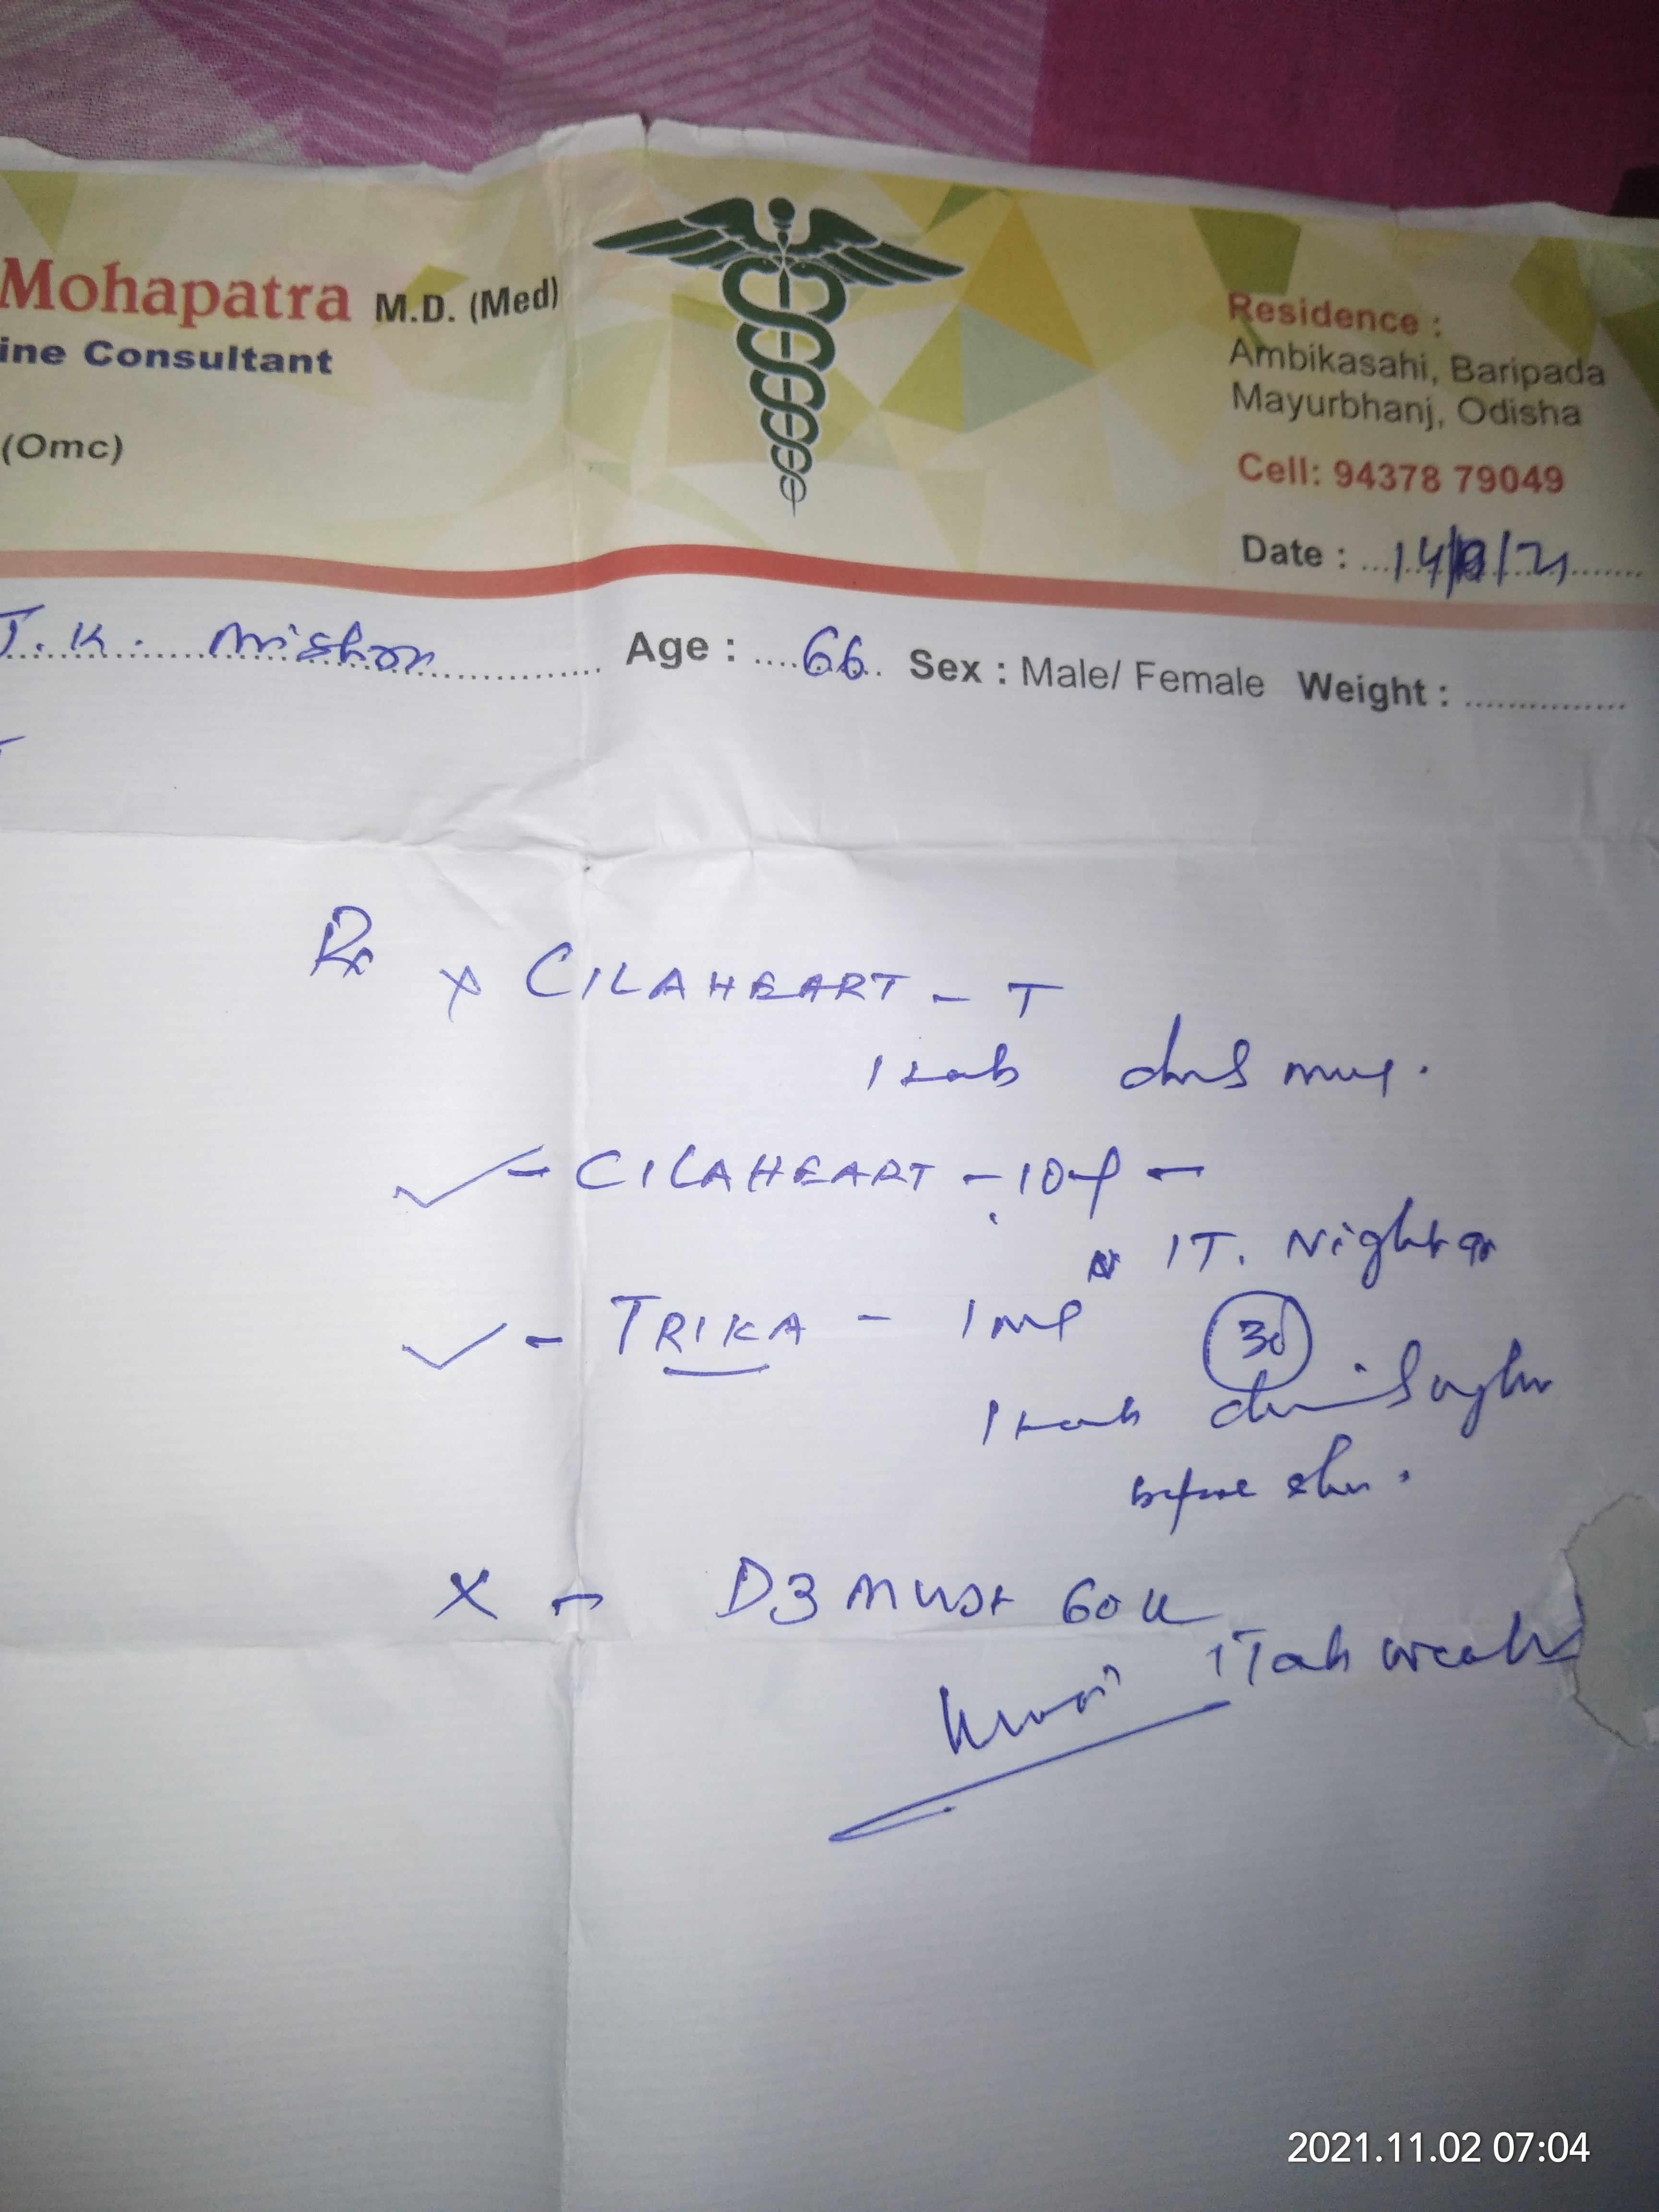 Mohapatra M.D. (Med)
ine Consultant
(Omc)
Residence :
Ambikasahi, Baripada
Mayurbhanj, Odisha
Cell: 94378 79049
Date : 14/ /21
J.K. Mishra Age : 66 Sex : Male/ Female Weight :
Rx
x CILAHEART - T
1 tab
✓ - CILAHEART - 10 -
1T. Night
✓ - TRIKA - 1 mg 30
1 tab
before
X - D3 MUST 60K
1 Tab weekly
2021.11.02 07:04